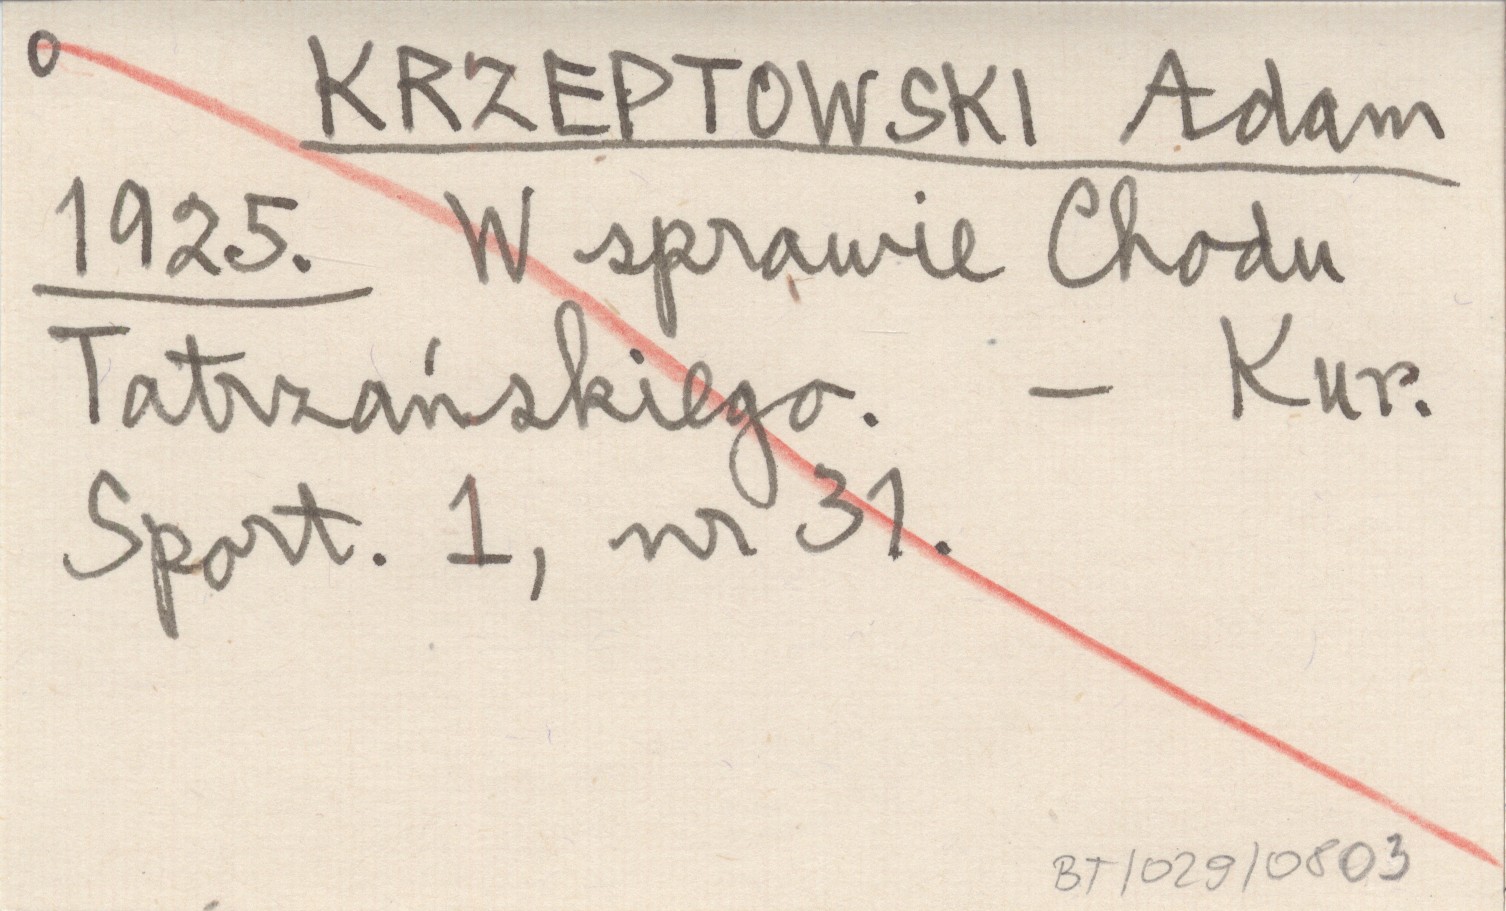 o KRZEPTOWSKI Adam
1925. W sprawie Chodu
Tatrzańskiego. — Kur.
Sport. 1, nr 31.
BT/029/0803